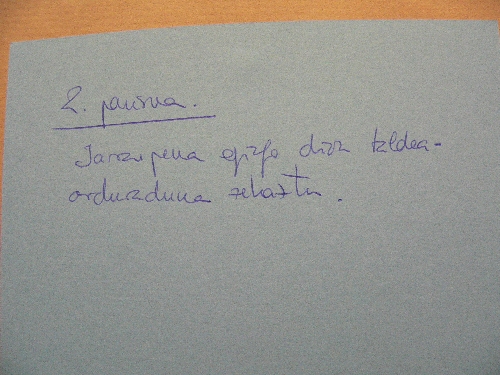 2. pausua.
Jarraipena egingo dion taldea-
arduraduna zehaztu.